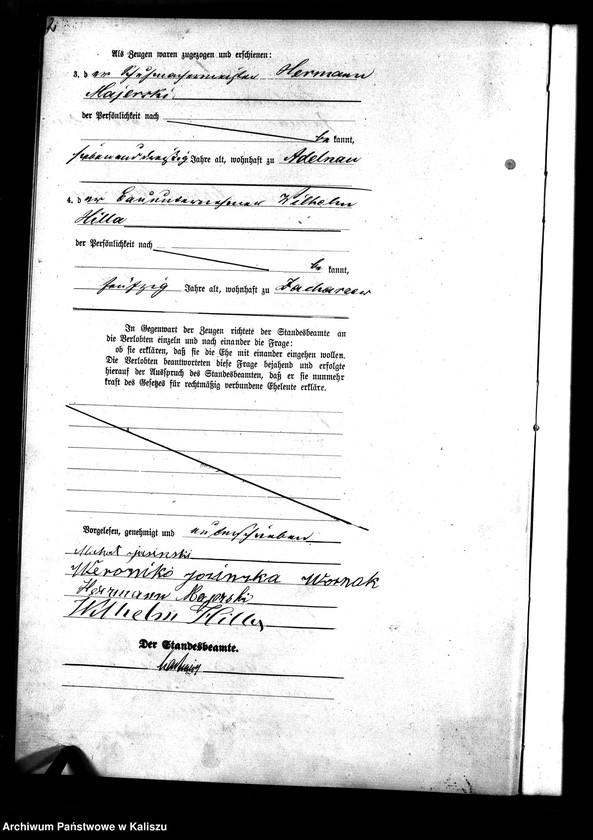 2
Als Zeugen waren zugezogen und erschienen:
3. d er Schuhmachermeister Hermann
Majerski
der Persönlichkeit nach
be kannt,
siebenunddreißig Jahre alt, wohnhaft zu Adelnau
4. d er Bauunternehmer Wilhelm
Hilla
der Persönlichkeit nach
be kannt,
fünfzig Jahre alt, wohnhaft zu Zacharzew
In Gegenwart der Zeugen richtete der Standesbeamte an
die Verlobten einzeln und nach einander die Frage:
ob sie erklären, daß sie die Ehe mit einander eingehen wollen.
Die Verlobten beantworteten diese Frage bejahend und erfolgte
hierauf der Ausspruch des Standesbeamten, daß er sie nunmehr
kraft des Gesetzes für rechtmäßig verbundene Eheleute erkläre.
Vorgelesen, genehmigt und unterschrieben
Michał Josinski
Weronika Josinska Woznak
Herrmann Majerski
Wilhelm Hilla
Der Standesbeamte.
Archiwum Państwowe w Kaliszu